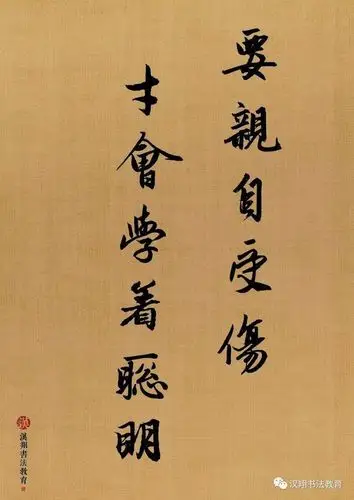 要親自受傷
才會學着聰明
漢翔書法教育
汉翔书法教育